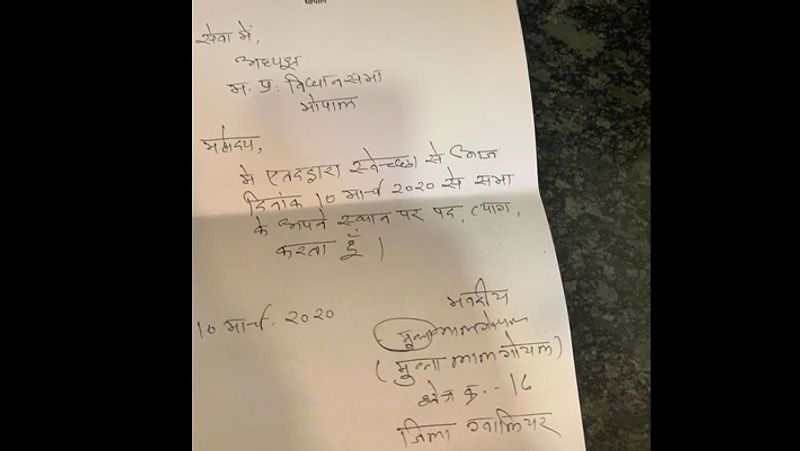 भोपाल
सेवा में,
अध्यक्ष
म. प्र. विधान सभा
भोपाल
महोदय,
मैं एतद्द्वारा स्वेच्छा से आज
दिनांक 10 मार्च 2020 से सभा
के अपने स्थान पर पद त्याग,
करता हूँ।
भवदीय
10 मार्च. 2020
मुन्नालाल गोयल
(मुन्ना लाल गोयल)
क्षेत्र क्र. - 16
जिला ग्वालियर